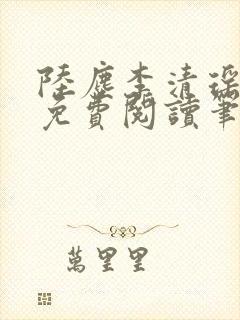 陸塵李清瑤
免費閱讀筆
萬里里